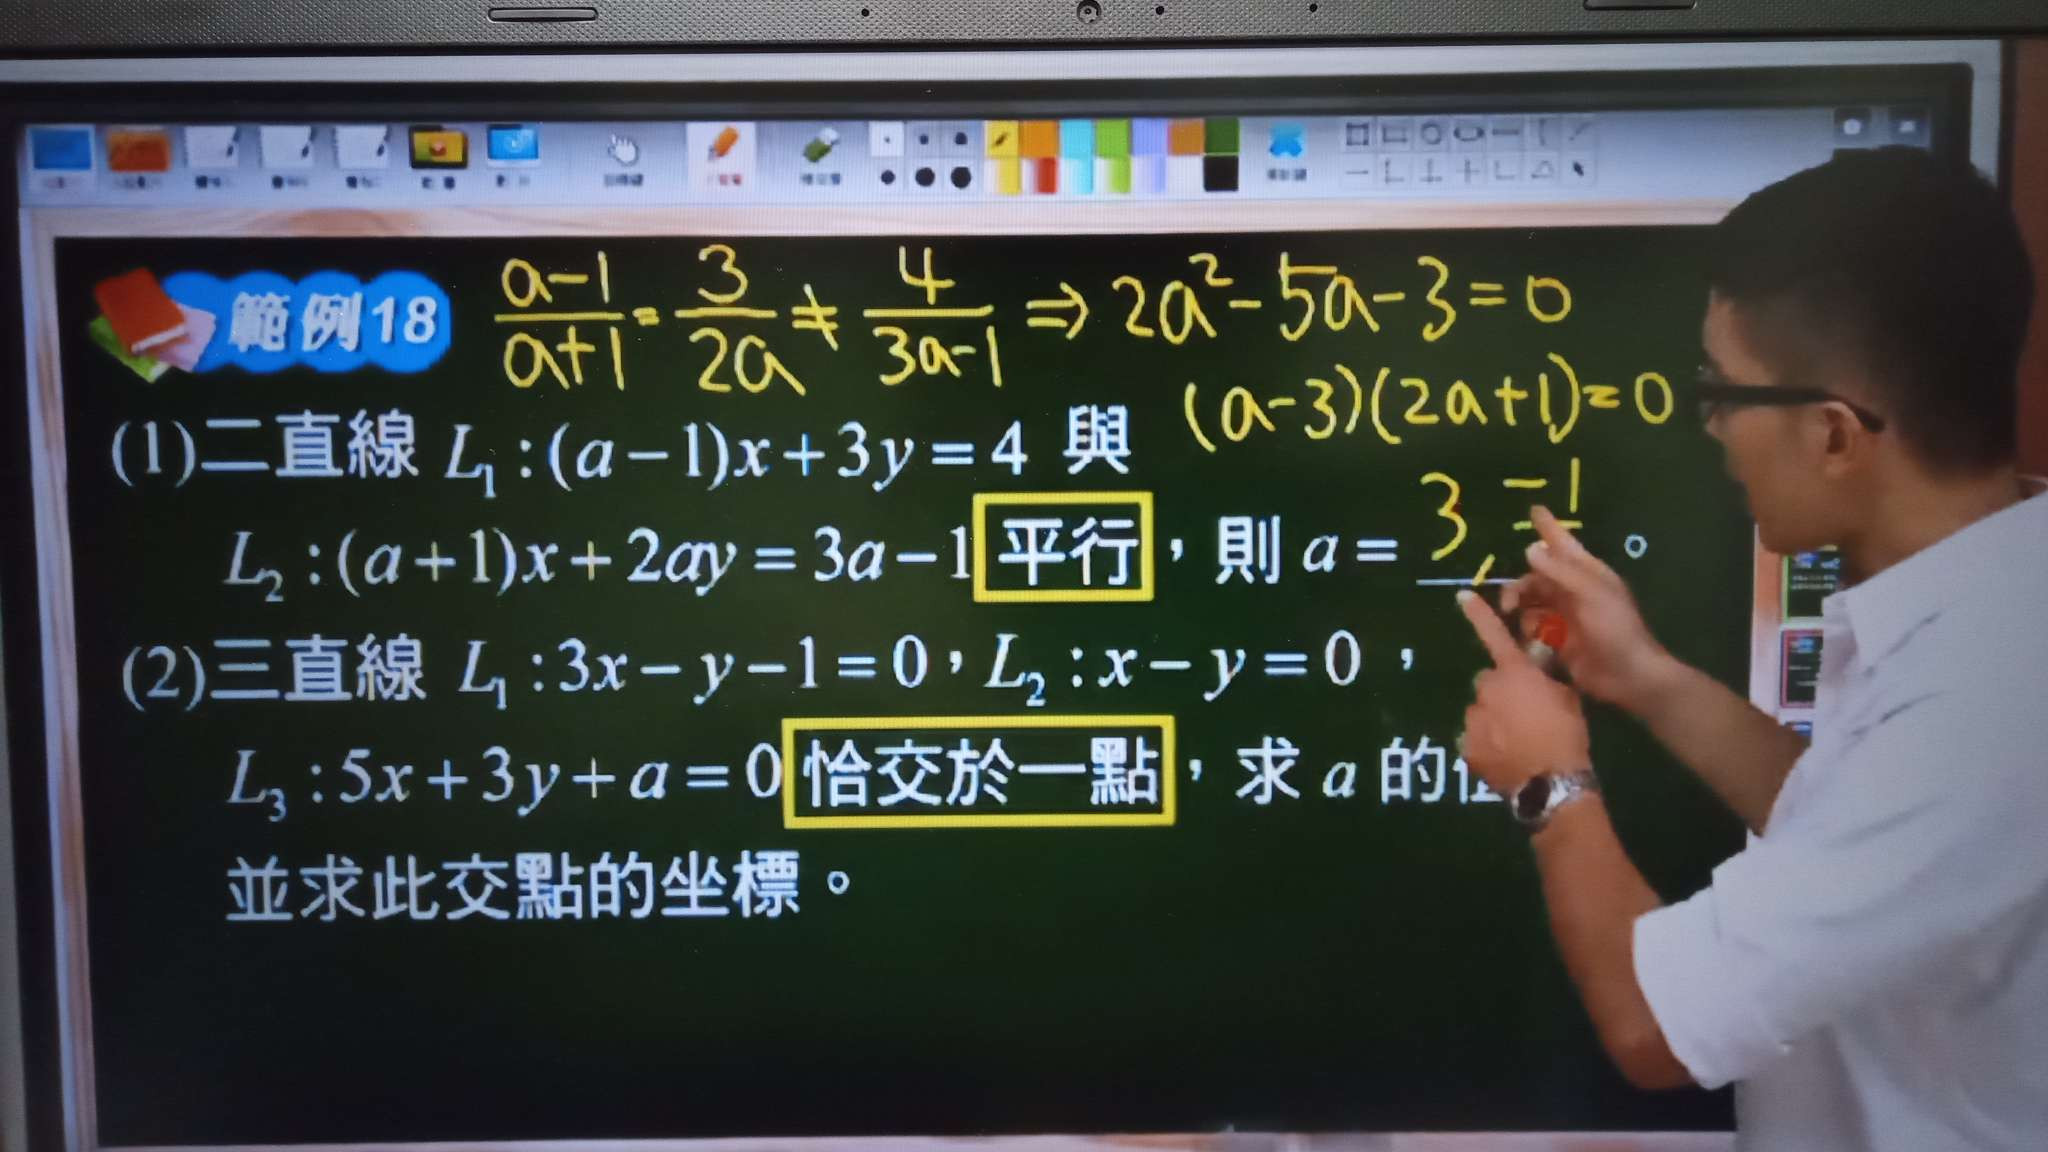 範例18
a-1/a+1 = 3/2a ≠ 4/3a-1 ⇒ 2a²-5a-3=0
(a-3)(2a+1)=0
(1)二直線 L₁:(a-1)x+3y=4 與
L₂:(a+1)x+2ay=3a-1 平行，則 a= 3, -1 。
(2)三直線 L₁:3x-y-1=0，L₂:x-y=0，
L₃:5x+3y+a=0 恰交於一點，求 a 的
並求此交點的坐標。